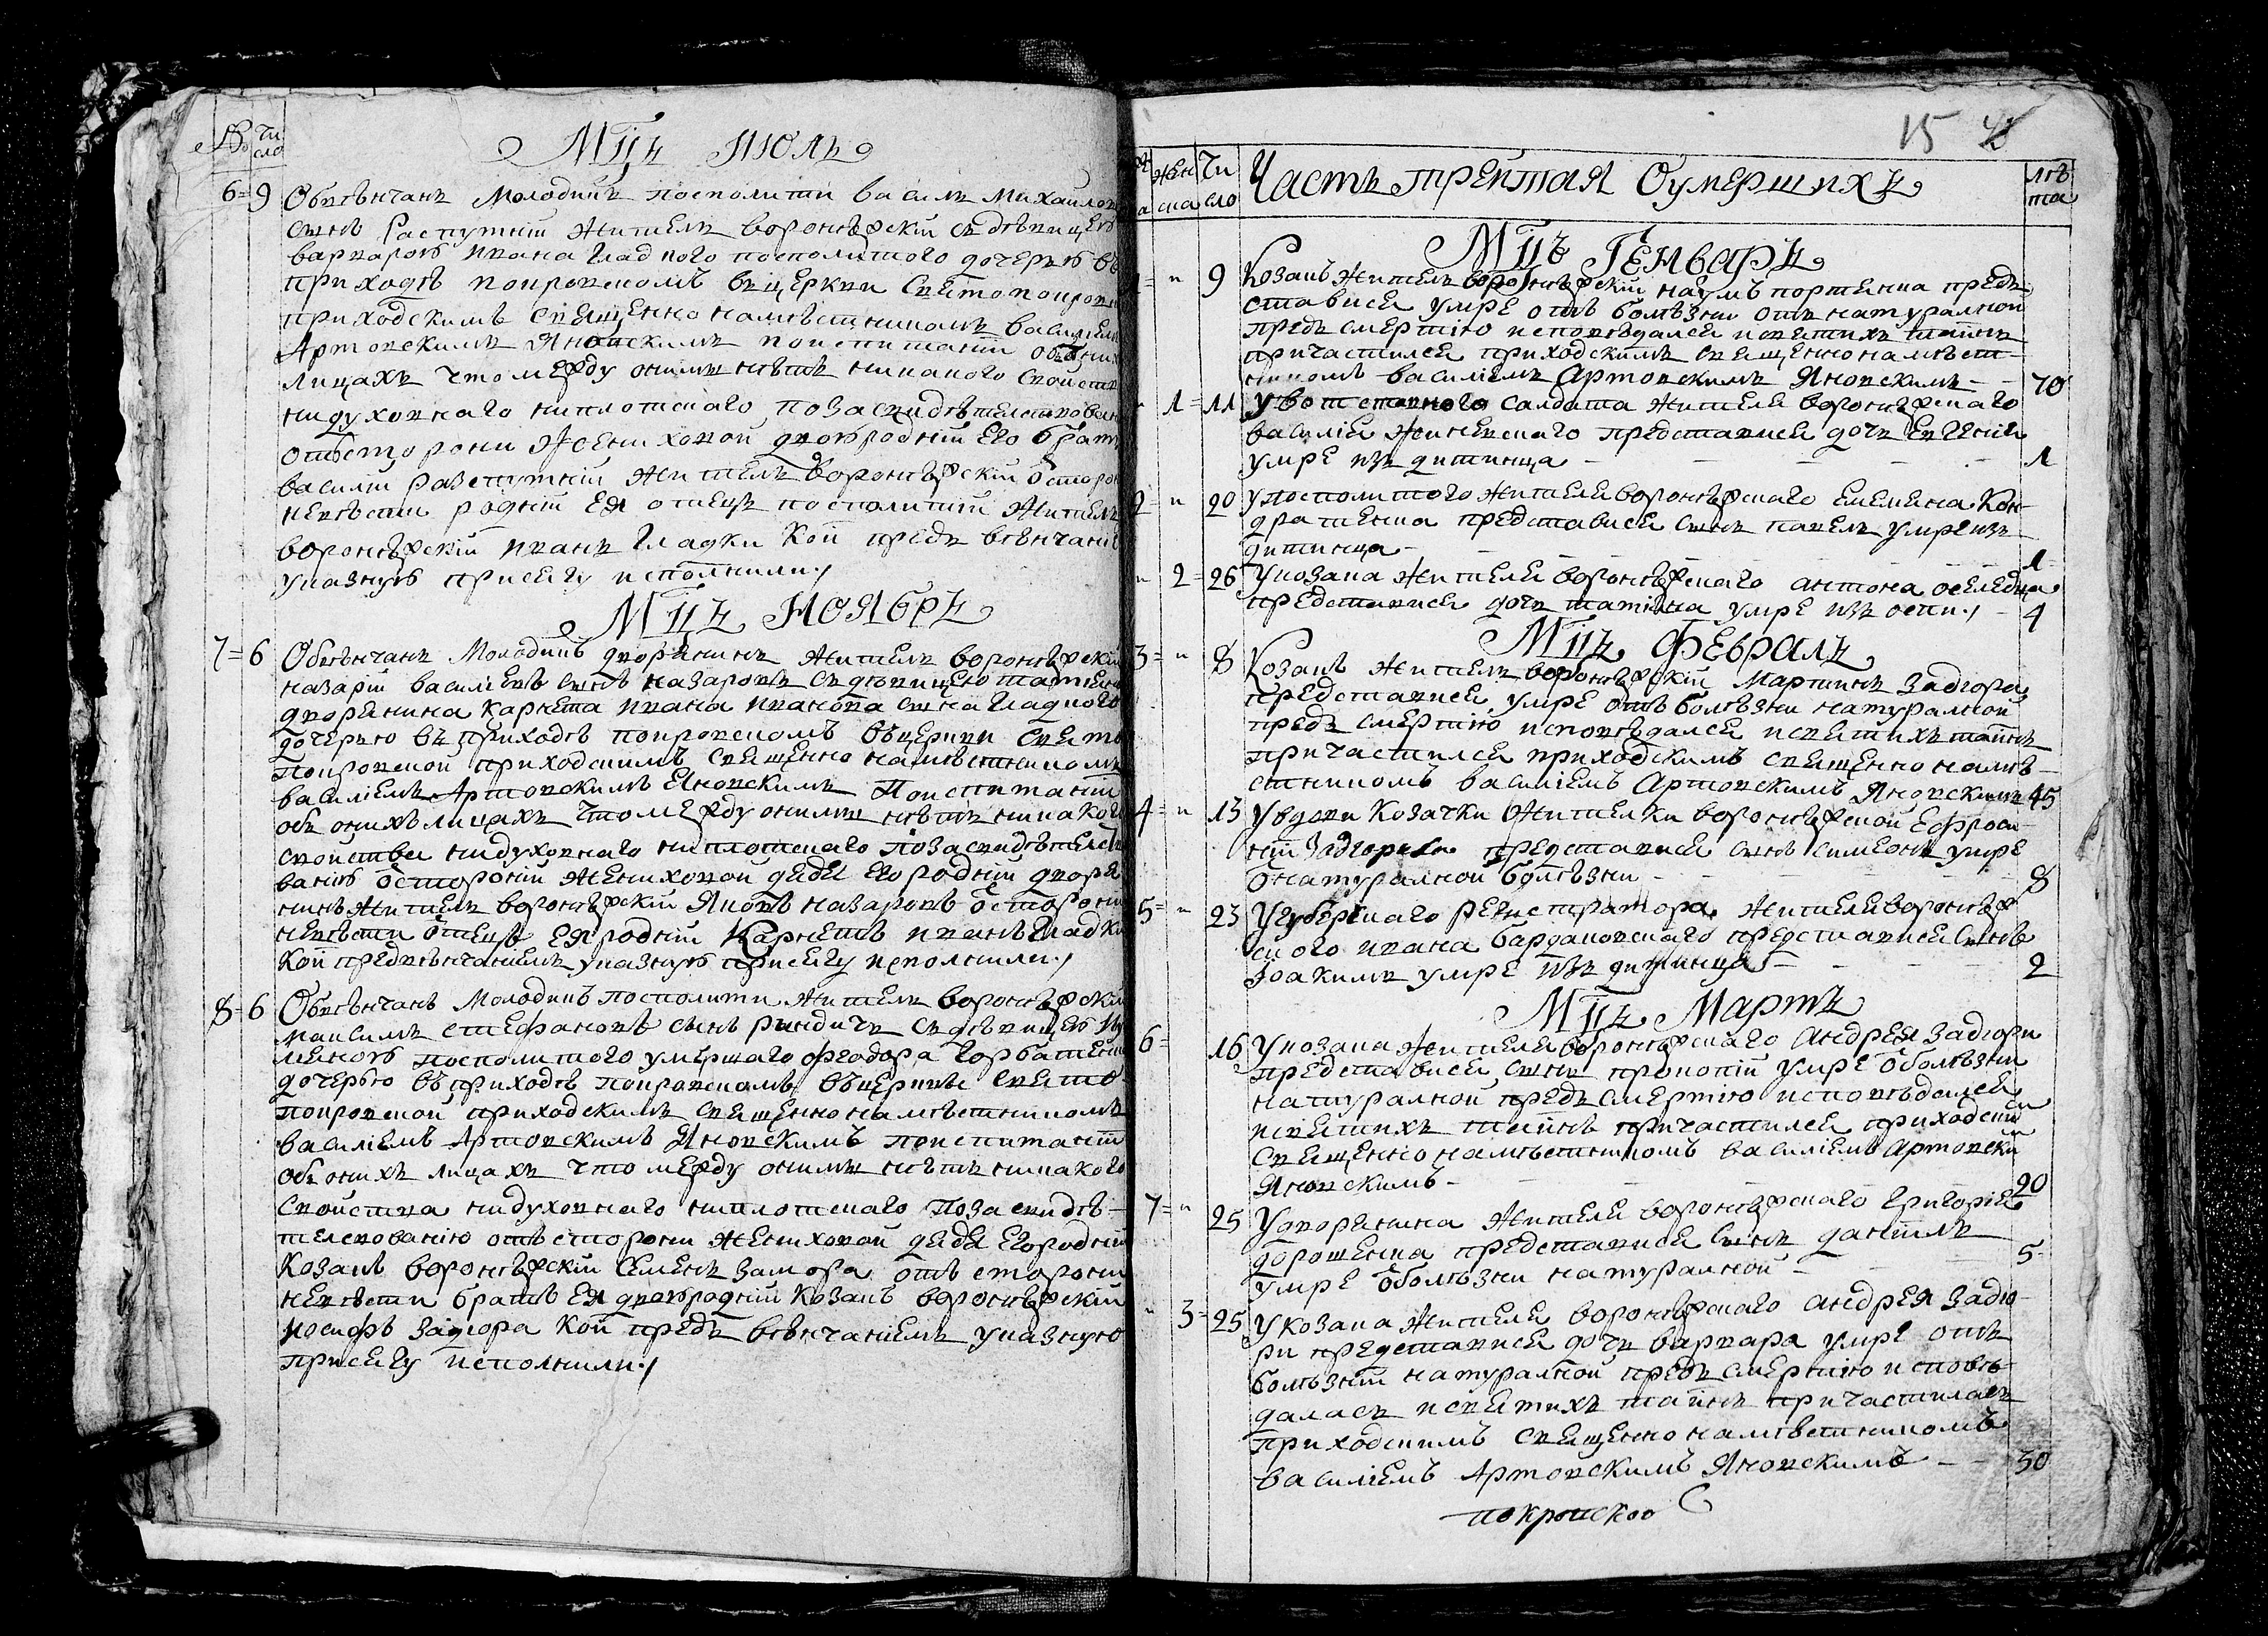 Чи
сло
Мцъ июль
6 = 9 Обвѣнчанъ Молодикъ посполити василь Михаилов
синъ Распутнiй житель воронѣжскiй съ дѣвицею
варварою ивана гладкого посполитого дочерью въ
приходѣ покровскомъ въ церкви Свято покров
приходскимъ священно намѣстникомъ василiемъ
Артовскимъ Яновскимъ по испитанiи об онихъ
лицахъ что между оними нѣтъ никакого свойств
ни духовнаго ни плотскаго по засвидѣтелствован
отъ сторони жениховой двоюроднiй его братъ
василiй распутнiй житель воронѣжскiй о сторон
невѣсти роднiй ея отецъ посполитiй житель
воронѣжскiй иванъ гладки кои предъ вѣнчанiе
указную присягу исполнили
Мцъ Ноябръ
7 = 6 Обвѣнчанъ Молодикъ дворянинъ житель воронѣжски
назарiй василiевъ синъ назаровъ съ дѣвицею татiяно
дворянина карнета ивана иванова сина гладкого
дочерью въ приходѣ покровскомъ въ церкви свято
покровской приходскимъ священно намѣстникомъ
василiемъ Артовскимъ Яновскимъ По испитанiи
объ онихъ лицахъ что между оними нѣтъ никаког
свойства ни духовнаго ни плотскаго по засвидѣтелст
ванiю о сторонiй жениховой дядя его роднiй дворя
нинъ житель воронѣжскiй Яковъ назаровъ о сторони
невѣсти отецъ ея роднiй Карнетъ иванъ гладки
кои предъ вѣнчанiемъ указную присягу исполнили
8 = 6 Обвѣнчанъ Молодикъ посполити житель воронѣжски
максимъ стефановъ синъ риндичъ съ дѣвицею
посполитого умершаго феодора горбатенк
дочерью въ приходѣ покровскомъ въ церквѣ свято
покровской приходскимъ священно намѣстникомъ
василiемъ Артовскимъ Яновскимъ по испитанiи
объ онихъ лицахъ что между оними нѣтъ никакого
свойства ни духовнаго ни плотскаго По засвидѣ-
телствованiю отъ сторони жениховой дядя его роднiй
козакъ воронѣжскiй Семенъ замора отъ сторони
невѣсти братъ ея двоюроднiй козакъ воронѣжскiй
иосифъ задiора кои предъ вѣнчанiемъ указную
присягу исполнили
15
жен ска Чи сло Часть третая О умершихъ лѣ та
Мцъ Генваръ
1 = " 9 Козакъ житель воронѣжскiй наумъ портянка пред
ставися умре отъ болѣзни отъ натуралной
предъ смертiю исповѣдался и святихъ таинъ
причастился приходскимъ священно намѣст-
никомъ василiемъ Артовскимъ Яновскимъ - 70
" 1 = 11 У вотставного салдата жителя воронѣжскаго
василiя жиневскаго представися дочь Евгенiя
умре изъ дитинца - 1
2 = " 20 У посполитого жителя воронѣжскаго емеляна Кон-
дратенка представися синъ павелъ умре изъ
дитинца - 1
" 2 = 26 У козака жителя воронѣжскаго антона оселедца
представися дочь татiяна умре изъ оспи - 4
Мцъ Февралъ
3 = " 8 Козакъ житель воронѣжскiй Мартинъ Задiора
представися умре отъ болѣзни натуралной
предъ смертiю исповѣдался и святихъ таинъ
причастился приходскимъ священно намѣ-
стникомъ василiемъ Артовскимъ Яновскимъ 45
4 = " 13 У вдови Козачки жителки воронѣжской Ефроси-
нiи Задiорки представися синъ Симеонъ умре
о натуралной болѣзни - 8
5 = " 23 У губерскаго регистратора жителя воронѣж
ского ивана бардаковскаго представися синъ
Iоакимъ умре изъ дитинца - 2
Мцъ Мартъ
6 = 16 У козака жителя воронѣжскаго Андрея Задiори
представися синъ прокопiй умре о болѣзни
натуралной предъ смертiю исповѣдался
и святихъ таинъ причастился приходски
священно намѣстникомъ василiемъ Артовски
Яновскимъ - 20
7 = " 25 У дворянина жителя воронѣжскаго Григорiя
дорошенка представися синъ данiилъ
умре о болѣзни натуралной - 5
" 3 = 25 У козака жителя воронѣжскаго андрея Задiо-
ри представися дочь варвара умре отъ
болѣзнiи натуралной предъ смертiю исповѣ-
далась и святихъ таинъ причастилась
приходскимъ священно намѣстникомъ
василiемъ Артовскимъ Яновскимъ - - 30
покровско